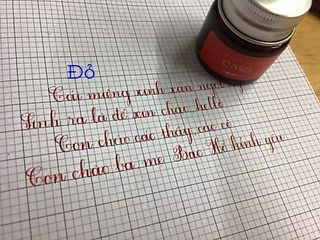 Đỏ
Cái miệng xinh xắn
Sinh ra là để xin chào hello
Con chào các thầy các cô
Con chào ba mẹ Bác Hồ kính yêu